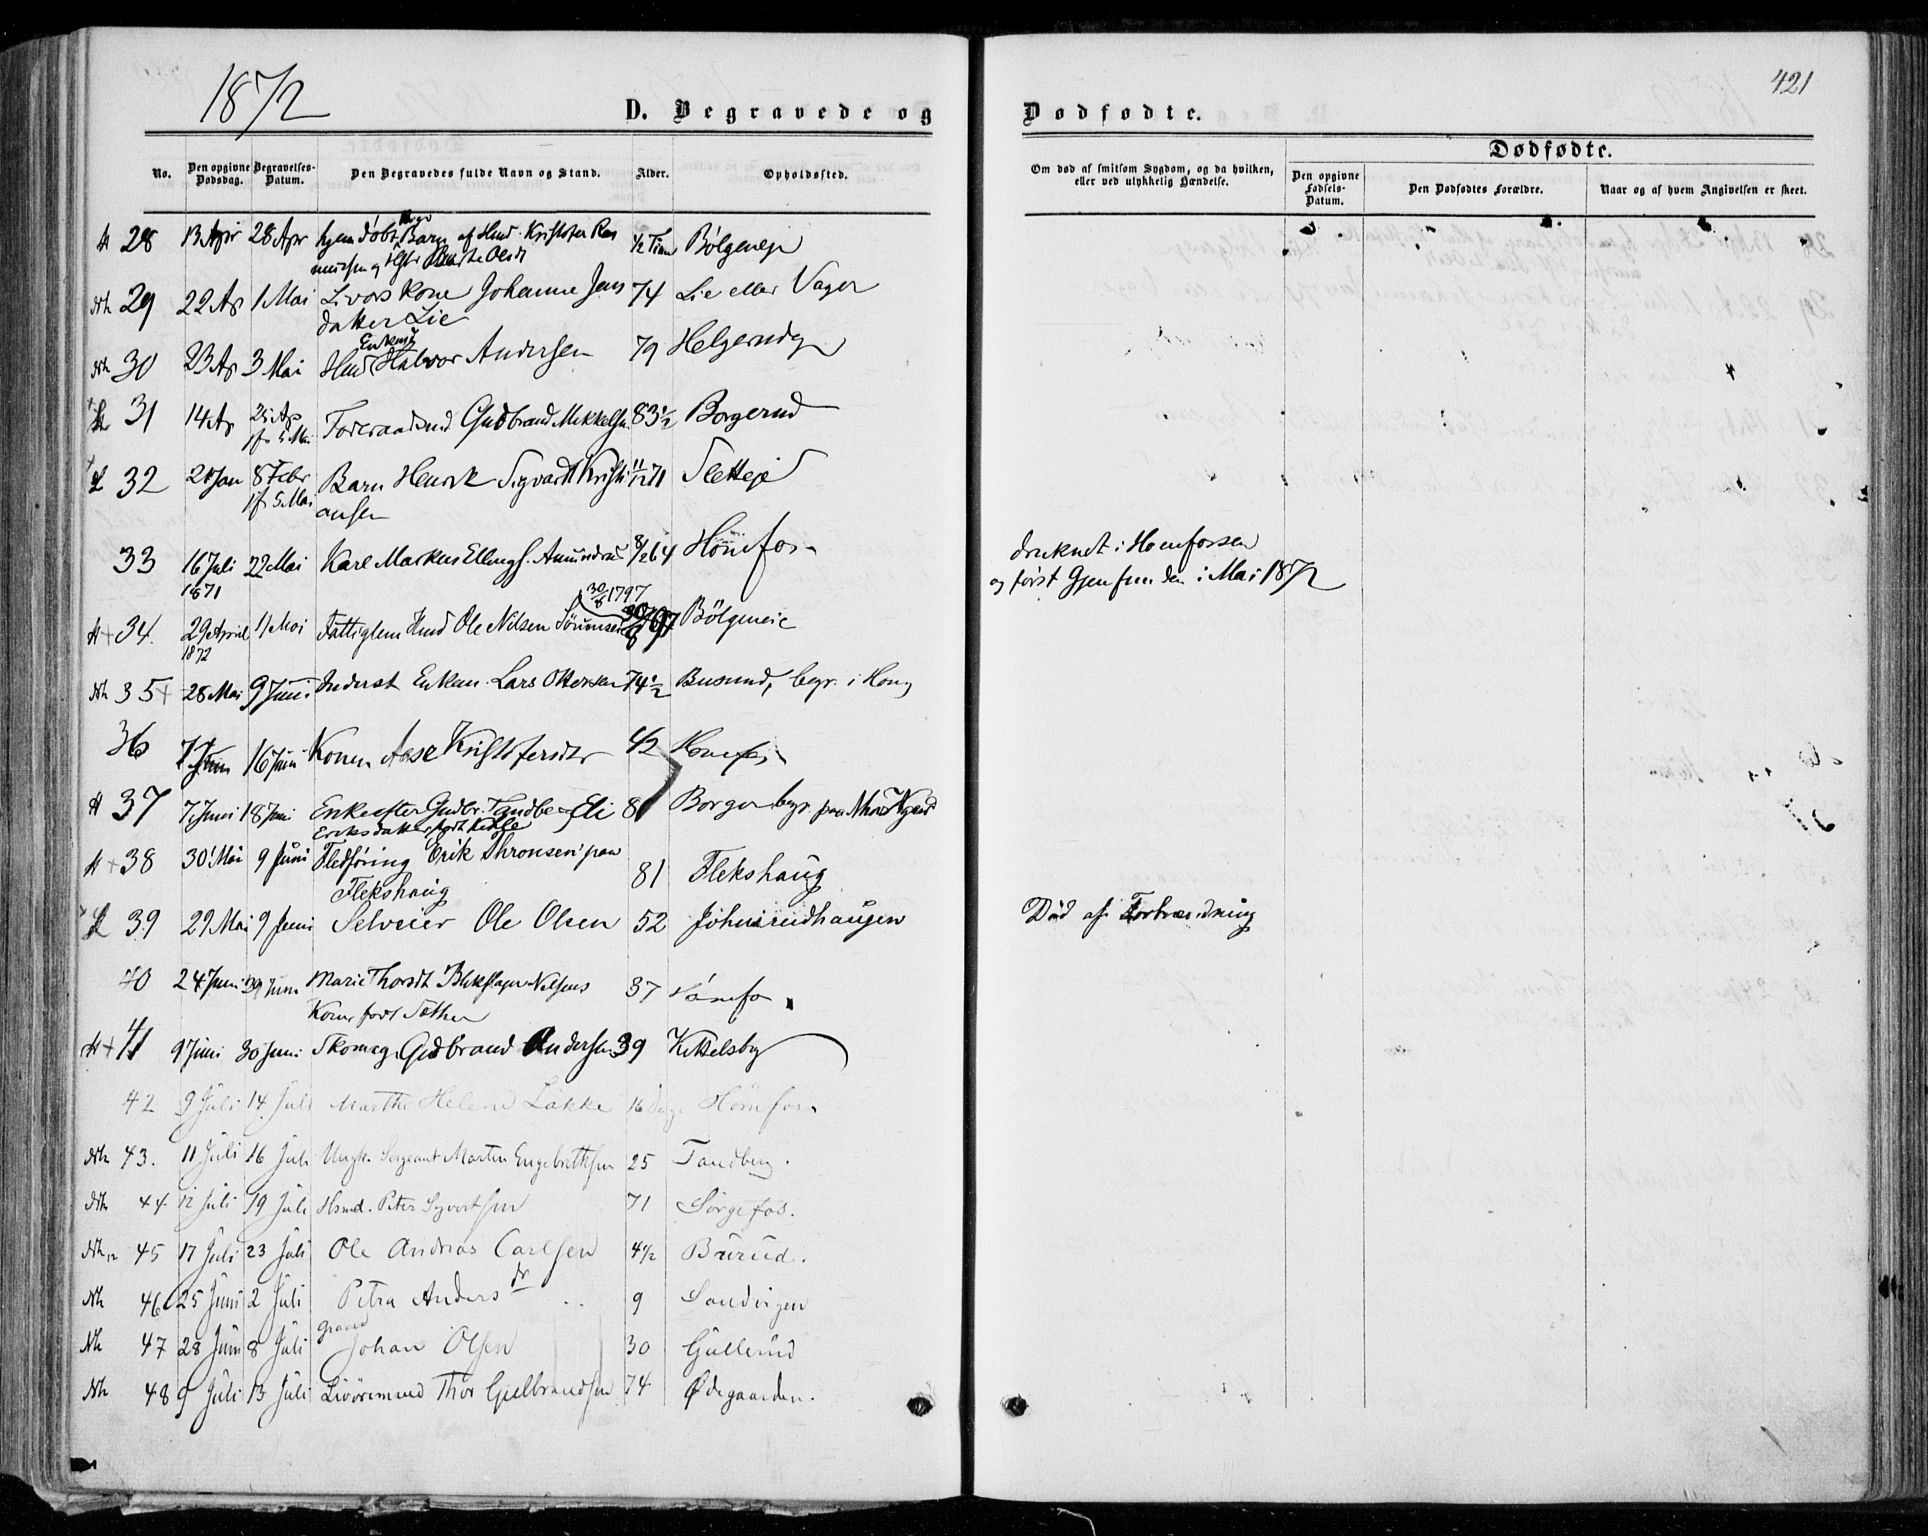 1872
D. Begravede og
Dødfødte.
421
No. Den opgivne Dødsdag. Begravelses-Datum. Den Begravedes fulde Navn og Stand. Alder. Opholdssted.
Om død af smitsom Sygdom, og da hvilken, eller ved ulykkelig Hændelse.
Dødfødte.
Den opgivne Fødsels-Datum. Den Dødfødtes Forældre. Naar og af hvem Angivelsen er skeet.
28 13 Apr 28 Apr hjemdøbt Barn af Kristofer Ras ½ Time
mussen og Olsdt
29 22 Ap 1 Mai Livørs Kone Johanne Jens 74 Lie eller Vager
datter Lie
Enkem
30 23 Ap 3 Mai Halvor Andersen 79
31 14 Ap 25 Ap Gudbrand Mikkelsen 83½ Borgerud
jf 5 Mai
32 21 Jan 8 Febr Barn Henrik Sigvardt Kristi 11/12 71 Sletteje
jf 5 Mai ansen
33 16 Juli 22 Mai Karl Markus Ellings. 8/2 64 Hönefos druknet i Hönefossen
1871 og først Gjenfunden i Mai 1872
30/8 1797
34. 29 April 11 Mai Fattiglem Ole Nilsen Bölgeneie
1872
Nh 35 28 Mai 9 Juni Inderst Enkem. Lars Ottersen 74½ Busund, begr. i
36 16 Juni Konen Aase Kristofersdtr 42 Honefos
37 7 Juni 18 Juni Enke efter Gudbr. Tandberg Eli Borger begr. paa
Eriksdatter født
38 30 Mai 9 Juni Fledføring Erik Thronsen paa 81 Flekshaug
Flekshaug
39 29 Mai 9 Juni Selveier Ole Olsen 52 Johnsrudhaugen Død af Forbrænding
40 24 Juni Juni Marie Thorsdt Blikslager Nilsens 37 Hönefos
Kone født Sæther
41 9 Juni 30 Juni Skomag. Gudbrand Andersen 39 Kittelsby
42 9 Juli 14. Juli Marthe Helene Løkke 16 Dage Hönefos.
Nh 43. 11 Juli 16 Juli Ungk. Sergeant Martin Engebrethsen 25 Tandberg.
Nh 44. 12 Juli 19 Juli Hsmd. Peter Syvertsen 71 Sörgefos.
Nh 45 17 Juli 23 Juli Ole Andreas Carlsen 4½ Burud.
Nh 46 25 Juni 2 Juli Petra Andersdr 9 Sandvigen
Nh 47 28 Juni 8 Juli Johan Olsen 30 Gullerud
Nh 48 9 Juli 13 Juli Livöremand Thor Gulbrandsen 74 Ødegaarden.